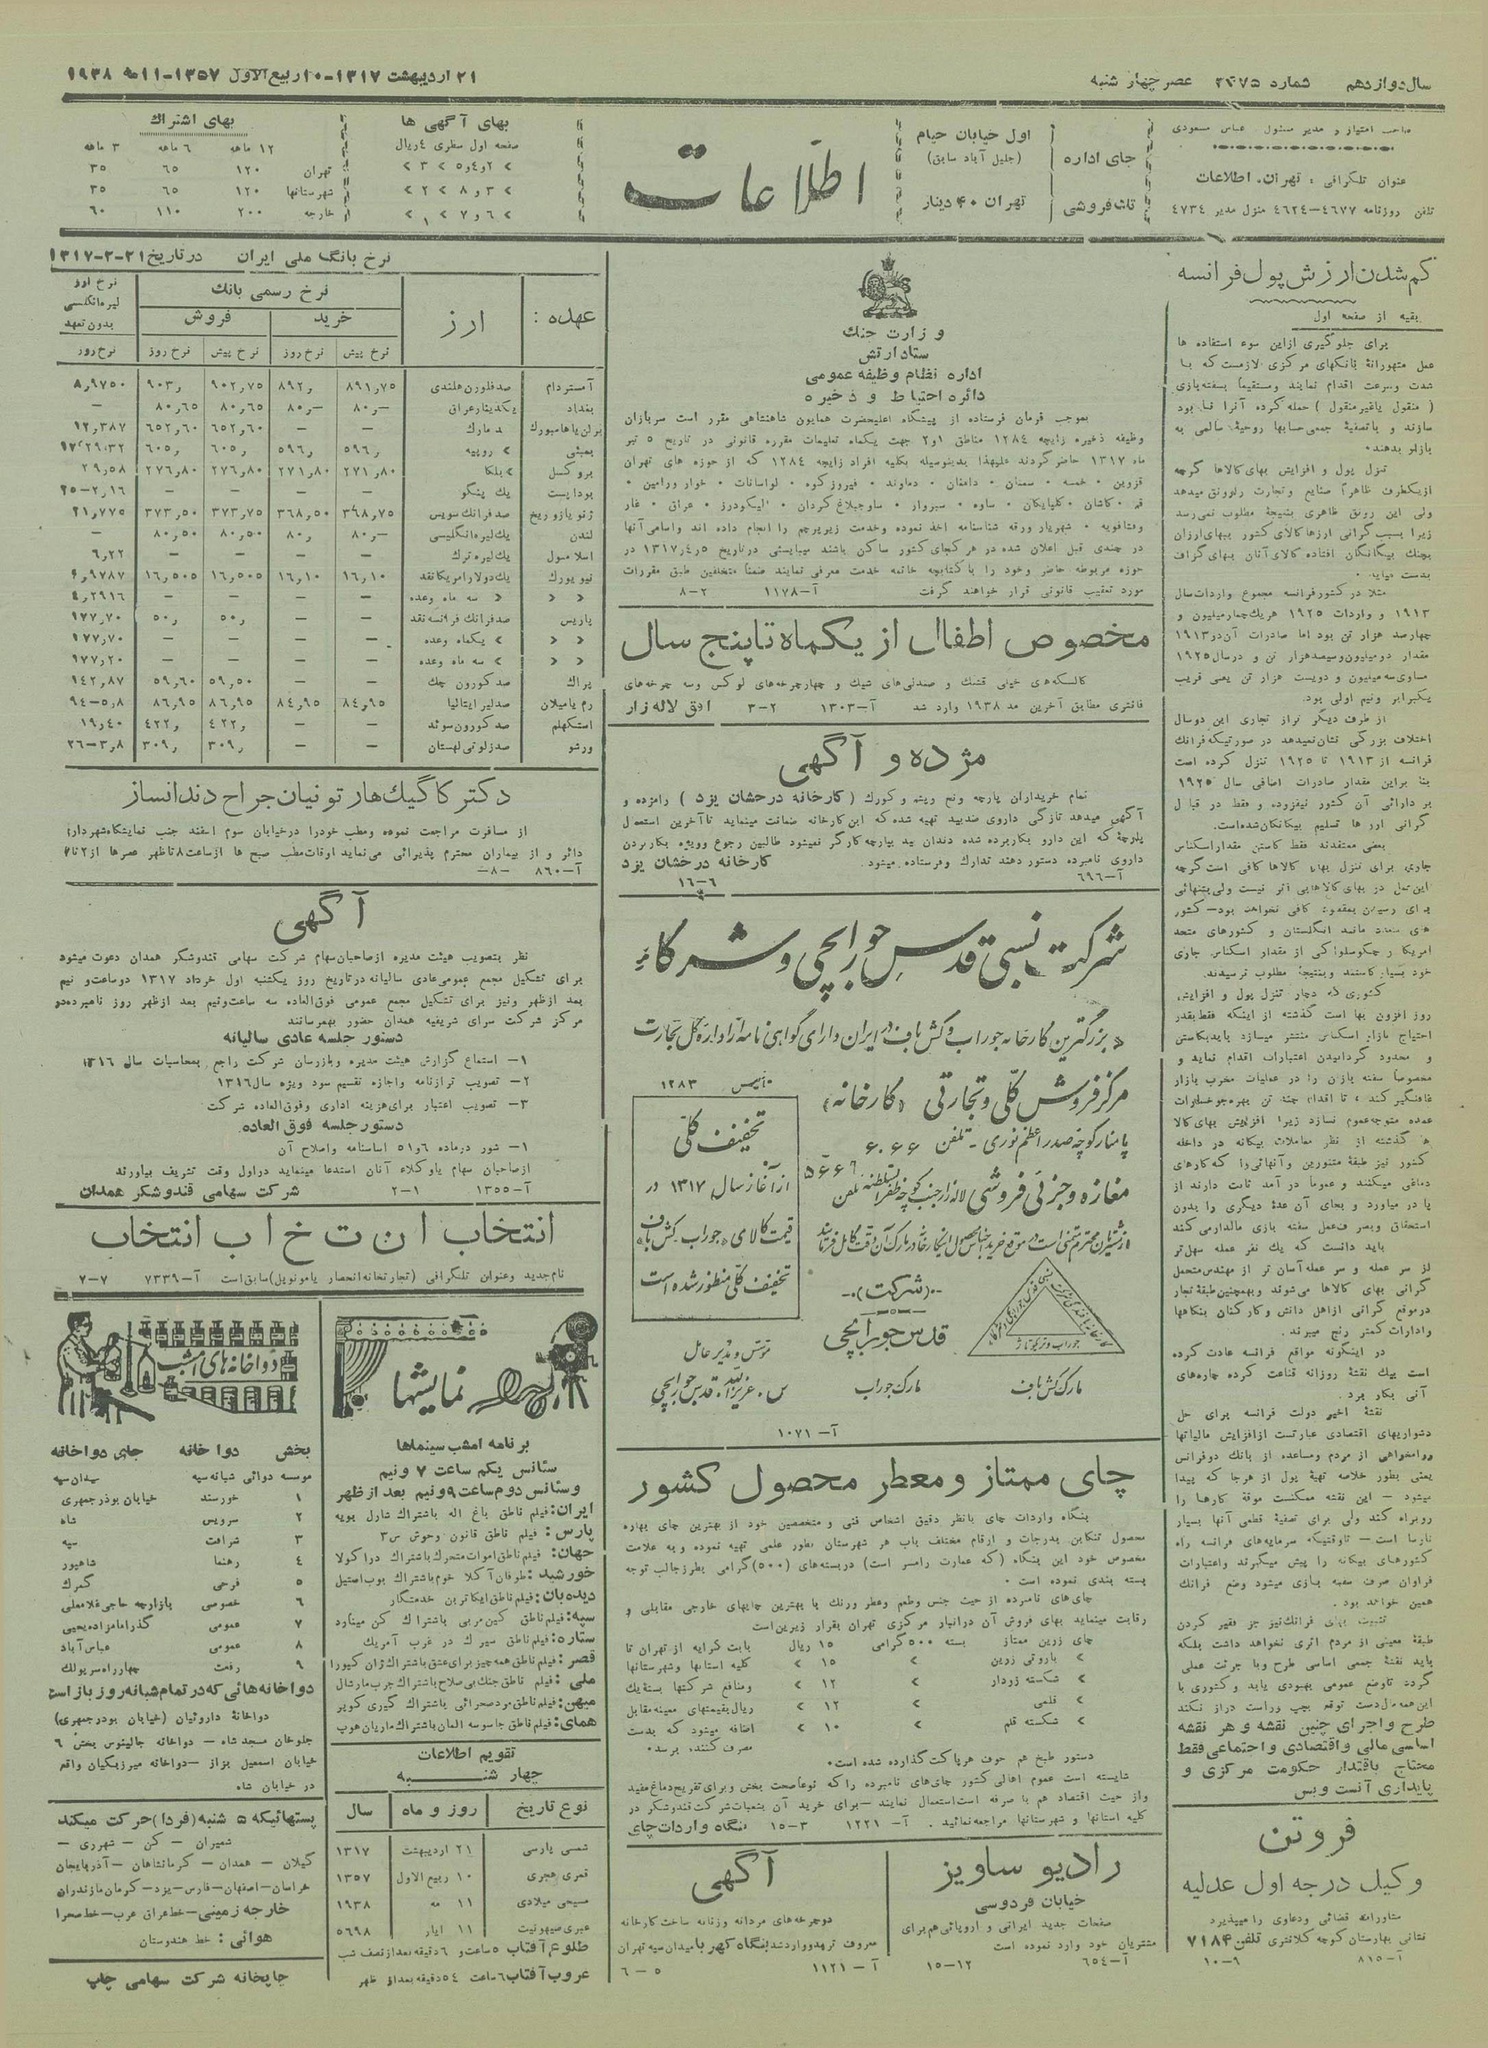 سال دوازدهم شماره ۳۴۷۵ عصر چهار شنبه
۲۱ اردیبهشت ۱۳۱۷-۱۰ ربیع الاول ۱۳۵۷-۱۱ مه ۱۹۳۸
صاحب امتیاز و مدیر مسئول عباس مسعودی
عنوان تلگرافی : تهران. اطلاعات
تلفن روزنامه ۴۶۷۷-۴۶۲۴ منزل مدیر ۴۷۳۴
جای اداره
اول خیابان خیام
(جلیل آباد سابق)
تك فروشی
تهران ۴۰ دینار
اطلاعات
بهای آگهی ها
صفحه اول سطری ۴ ریال
» ۲ و ۴ و ۵ » ۳ »
» ۳ و ۸ » ۲ »
» ۶ و ۷ » ۱ »
بهای اشتراك
۱۲ ماهه ۶ ماهه ۳ ماهه
تهران ۱۲۰ ۶۵ ۳۵
شهرستانها ۱۲۰ ۶۵ ۳۵
خارجه ۲۰۰ ۱۱۰ ۶۰
کم شدن ارزش پول فرانسه
بقیه از صفحه اول
برای جلوگیری ازاین سوء استفاده ها
عمل متهورانهٔ بانکهای مرکزی لازمست که با
شدت وسرعت اقدام نمایند ومستقیماً بسفته بازی
(منقول یاغیرمنقول) حمله کرده آنرا فنا بود
سازند و باتصفیهٔ جمعی حسابها روحیهٔ سالمی به
بازار بدهند.
تنزل پول و افزایش بهای کالاها گرچه
ازیکطرف ظاهراً صنایع وتجارت رارونق میدهد
ولی این رونق ظاهری بنتیجهٔ مطلوب نمی رسد
زیرا بسبب گرانی ارزها کالای کشور ببهای ارزان
بچنك بیگانگان افتاده کالای آنان ببهای گزاف
بدست میاید.
مثلا در کشور فرانسه مجموع واردات سال
۱۹۱۳ و واردات ۱۹۲۵ هریك چهار میلیون و
چهارصد هزار تن بود اما صادرات آن در ۱۹۱۳
مقدار دومیلیون وسیصد هزار تن و در سال ۱۹۲۵
مساوی سه میلیون و دویست هزار تن یعنی قریب
یکبرابر ونیم اولی بود.
از طرف دیگر تراز تجاری این دوسال
اختلاف بزرگی نشان نمیدهد در صورتیکه فرانك
فرانسه از ۱۹۱۳ تا ۱۹۲۵ تنزل کرده است
بنا براین مقدار صادرات اضافی سال ۱۹۲۵
بر دارائی آن کشور نیفزوده و فقط در قبال
گرانی ارز ها تسلیم بیگانگان شده است.
بعضی معتقدند فقط کاستن مقدار اسکناس
جاری برای تنزل بهای کالاها کافی است گرچه
این عمل در بهای کالاها بی اثر نیست ولی بتنهائی
برای رسیدن بمقصود کافی نخواهد بود - کشور
های متعدد مانند انگلستان و کشورهای متحد
امریکا و چکوسلواکی از مقدار اسکناس جاری
خود بسیار کاستند وبنتیجهٔ مطلوب نرسیدند.
کشوری که دچار تنزل پول و افزایش
روز افزون بها است گذشته از اینکه فقط بقدر
احتیاج بازار اسکناس منتشر میسازد باید بکاستن
و محدود گردانیدن اعتبارات اقدام نماید و
مخصوصاً سفته بازان را در عملیات مخرب بازار
غافلگیر کند
عمده متوجه عموم نسازد زیرا افزایش بهای کالا
ها گذشته از نظر معاملات بیگانه در داخله
کشور نیز طبقهٔ متنورین وآنهائی را که کارهای
دماغی میکنند و عموماً در آمد ثابت دارند از
پا در میاورد و بجای آن عدهٔ دیگری را بدون
استحقاق وبصرف عمل سفته بازی مالدار می کند
باید دانست که یك نفر عمله سهل تر
از سر عمله و سر عمله آسان تر از مهندس متحمل
گرانی بهای کالاها می شوند وبهمچنین طبقهٔ تجار
درموقع گرانی ازاهل دانش وکارکنان بنگاهها
وادارات کمتر رنج میبرند.
در اینگونه مواقع فرانسه عادت کرده
است بیك نقشهٔ روزانه قناعت کرده چاره های
آنی بکار برد.
نقشهٔ اخیر دولت فرانسه برای حل
دشواریهای اقتصادی عبارتست ازافزایش مالیاتها
ووامخواهی از مردم ومساعده از بانك دوفرانس
یعنی بطور خلاصه تهیهٔ پول از هرجا که پیدا
میشود - این نقشه ممکنست موقة کارها را
روبراه کند ولی برای تصفیهٔ قطعی آنها بسیار
نارسا است - تاوقتیکه سرمایه های فرانسه راه
کشورهای بیگانه را پیش میگیرند واعتبارات
فراوان صرف سفته بازی میشود وضع فرانك
همین خواهد بود.
تثبیت بهای فرانك نیز جز فقیر کردن
طبقهٔ معینی از مردم اثری نخواهد داشت بلکه
باید نقشهٔ جمعی اساسی طرح وبا جرئت عملی
گردد تاوضع عمومی بهبودی یابد و کشوری با
این همه مال دست توقع بچپ وراست دراز نکند
طرح واجرای چنین نقشه و هر نقشه
اساسی مالی واقتصادی و اجتماعی فقط
محتاج باقتدار حکومت مرکزی و
پایداری آنست وبس
فروتن
وکیل درجه اول عدلیه
مشاورات قضائی ودعاوی را میپذیرد
نشانی بهارستان کوچه کلانتری تلفن ۷۱۸۴
آ-۸۱۵ ۱۰-۹
وزارت جنك
ستاد ارتش
اداره نظام وظیفه عمومی
دائره احتیاط و ذخیره
بموجب فرمان فرستاده از پیشگاه اعلیحضرت همایون شاهنشاهی مقرر است سربازان
وظیفه ذخیره زایچه ۱۲۸۴ مناطق ۱و۲ جهت یکماه تعلیمات مقرره قانونی در تاریخ ۵ تیر
ماه ۱۳۱۷ حاضر گردند علیهذا بدینوسیله بکلیه افراد زایچه ۱۲۸۴ که از حوزه های تهران
قزوین • خمسه • سمنان • دامغان • دماوند • فیروز کوه • لواسانات • خوار ورامین •
قم • کاشان • گلپایگان • ساوه • سبزوار • ساوجبلاغ کردان • الیگودرز • عراق • غار
وفشافویه • شهریار ورقه شناسنامه اخذ نموده وخدمت زیرپرچم را انجام داده اند واسامی آنها
در چندی قبل اعلان شده در هر کجای کشور ساکن باشند میبایستی درتاریخ ۱۳۱۷ر۴ر۵ در
حوزه مربوطه حاضر وخود را باکتابچه خاتمه خدمت معرفی نمایند ضمناً متخلفین طبق مقررات
مورد تعقیب قانونی قرار خواهند گرفت آ-۱۱۷۸ ۸-۲
مخصوص اطفال از یکماه تا پنج سال
کالسکه های خیلی قشنك و صندلی های شیك و چهارچرخه های لوکس وسه چرخه های
فانتزی مطابق آخرین مد ۱۹۳۸ وارد شد آ-۱۳۰۳ ۳-۲ افق لاله زار
مژده و آگهی
تمام خریداران پارچه ونخ ویشم وکورك (کارخانه درخشان یزد) رامژده و
آگهی میدهد تازگی داروی ضدبید تهیه شده که این کارخانه ضمانت مینماید تاآخرین استعمال
پارچهٔ که این دارو بکاربرده شده دندان بید بپارچه کارگر نمیشود طالبین رجوع وویژه بکاربردن
داروی نامبرده دستور دهند تدارك وفرستاده میشود. کارخانه درخشان یزد
آ-۶۹۶ ۱۶-۶
شرکت نسبی قدس جورابچی و شرکاء
«بزرگترین کارخانه جوراب و کش باف در ایران دارای گواهی نامه از اداره کل تجارت
تأسیس ۱۲۸۳
مرکز فروش کلی و تجارتی «کارخانه»
پامنار کوچه صدراعظم نوری - تلفن ۶۰۶۶
مغازه و جزئی فروشی لاله زار جنب کوچه ظفرالسلطنه تلفن ۵۶۶۶
از مشتریان محترم متمنی است در موقع خرید اجناس محصول این کارخانه در مارک آن دقت کامل فرمایند
تخفیف کلی
از آغاز سال ۱۳۱۷ در
قیمت کالای «جوراب کش باف»
تخفیف کلی منظور شده است
(شرکت)
قدس جورابچی
مؤسس و مدیر عامل
س. عزیزالله. قدس جورابچی
مارک جوراب
مارک کش باف
آ-۱۰۷۱
چای ممتاز و معطر محصول کشور
بنگاه واردات چای بانظر دقیق اشخاص فنی و متخصصین خود از بهترین چای بهاره
محصول تنکابن بدرجات و ارقام مختلف باب هر شهرستان بطور علمی تهیه نموده و به علامت
مخصوص خود این بنگاه (که عمارت رامسر است) دربسته های (۵۰۰) گرامی بطرز جالب توجه
بسته بندی نموده است.
چای های نامبرده از حیث جنس وطعم وعطر ورنك با بهترین چایهای خارجی مقابلی و
رقابت مینماید بهای فروش آن درانبار مرکزی تهران بقرار زیرین است
چای زرین ممتاز بسته ۵۰۰ گرامی ۱۵ ریال
» باروتی زرین » ۱۵ »
» شکسته زودار » ۱۲ »
» قلمی » ۱۲ »
» شکسته قلم » ۱۰ »
بابت کرایه از تهران تا
کلیه استانها وشهرستانها
ومنافع شرکتها بسته یك
ریال بقیمتهای معینه مقابل
اضافه میشود که بدست
مصرف کننده برسد.
دستور طبخ هم جوف هر پاکت گذارده شده است.
شایسته است عموم اهالی کشور چای های نامبرده را که نوعاً صحت بخش وبرای تفریح دماغ مفید
واز حیث اقتصاد هم با صرفه است استعمال نمایند - برای خرید آن بشعبات شرکت قندوشکر در
کلیه استانها و شهرستانها مراجعه نمائید. آ-۱۲۲۱ ۱۵-۳ بنگاه واردات چای
رادیو ساویز
خیابان فردوسی
صفحات جدید ایرانی و اروپائی هم برای
مشتریان خود وارد نموده است
آ-۶۵۴ ۱۵-۱۲
آگهی
دوچرخه های مردانه وزنانه ساخت کارخانه
معروف تریدووارد شد بنگاه کهربا میدان سپه تهران
آ-۱۱۲۱ ۶-۵
نرخ بانگ ملی ایران در تاریخ ۲۱-۲-۱۳۱۷
عهده : ارز نرخ رسمی بانك نرخ ارز لیره انگلیسی بدون تعهد
خرید فروش
نرخ پیش نرخ روز نرخ پیش نرخ روز نرخ روز
آمستردام صد فلورن هلندی ۸۹۱٫۷۵ ۸۹۲٫ ۹۰۲٫۷۵ ۹۰۳٫ ۸٫۹۷۵۰
بغداد یکدینار عراق ۸۰٫- ۸۰٫- ۸۰٫۶۵ ۸۰٫۶۵ -
برلن یاهامبورك صد مارك - - ۶۵۲٫۶۰ ۶۵۲٫۶۰ ۱۲٫۳۸۷
بمبئی » روپیه ۵۹۶٫ ۵۹۶٫ ۶۰۵٫ ۶۰۵٫
بروکسل » بلگا ۲۷۱٫۸۰ ۲۷۱٫۸۰ ۲۷۶٫۸۰ ۲۷۶٫۸۰ ۲۹٫۵۸
بوداپست یك پنگو - - - - ۲۵-۲٫۱۶
ژنو یا زوریخ صد فرانك سویس ۳۶۸٫۷۵ ۳۶۸٫۵۰ ۳۷۳٫۷۵ ۳۷۳٫۵۰ ۲۱٫۷۷۵
لندن یك لیره انگلیسی ۸۰٫- ۸۰٫ ۸۰٫۵۰ ۸۰٫۵۰ -
اسلامبول یك لیره ترك - - - - ۶٫۲۲
نیویورك یك دولار امریکا نقد ۱۶٫۱۰ ۱۶٫۱۰ ۱۶٫۵۰۵ ۱۶٫۵۰۵ ۴٫۹۷۸۷
» » » سه ماه وعده - - - - ۴٫۲۹۱۶
پاریس صد فرانك فرانسه نقد - - ۵۰٫ ۵۰٫ ۱۷۷٫۷۰
» » » یکماه وعده - - - - ۱۷۷٫۷۰
» » » سه ماه وعده - - - - ۱۷۷٫۲۰
پراك صد کورون چك - - ۵۹٫۵۰ ۵۹٫۶۰ ۱۴۲٫۸۷
رم یا میلان صد لیر ایتالیا ۸۴٫۹۵ ۸۴٫۹۵ ۸۶٫۹۵ ۸۶٫۹۵ ۹۴-۵٫۸
استکهلم صد کورون سوئد - - ۴۲۲٫ ۴۲۲٫ ۱۹٫۴۰
ورشو صد زلوتی لهستان - - ۳۰۹٫ ۳۰۹٫ ۲۶-۳٫۸
دکتر کاگیك هارتونیان جراح دندانساز
از مسافرت مراجعت نموده ومطب خودرا درخیابان سوم اسفند جنب نمایشگاه شهرداری
دائر و از بیماران محترم پذیرائی می نماید اوقات مطب صبح ها از ساعت ۸ تا ظهر عصرها از ۲ تا ۷
آ-۸۶۰ -۸-
آگهی
نظر بتصویب هیئت مدیره ازصاحبان سهام شرکت سهامی قندوشکر همدان دعوت میشود
برای تشکیل مجمع عمومی عادی سالیانه درتاریخ روز یکشنبه اول خرداد ۱۳۱۷ دوساعت و نیم
بعد ازظهر ونیز برای تشکیل مجمع عمومی فوق العاده سه ساعت ونیم بعد ازظهر روز نامبرده در
مرکز شرکت سرای شریفیه همدان حضور بهمرسانند
دستور جلسه عادی سالیانه
۱- استماع گزارش هیئت مدیره وبازرسان شرکت راجع بمحاسبات سال ۱۳۱۶
۲- تصویب ترازنامه واجازه تقسیم سود ویژه سال ۱۳۱۶
۳- تصویب اعتبار برای هزینه اداری وفوق العاده شرکت
دستور جلسه فوق العاده.
۱- شور درماده ۶ و ۵۱ اساسنامه واصلاح آن
ازصاحبان سهام یاوکلاء آنان استدعا مینماید دراول وقت تشریف بیاورند
آ-۱۳۵۵ ۲-۱ شرکت سهامی قندوشکر همدان
انتخاب ان ت خ اب انتخاب
نام جدید وعنوان تلگرافی (تجارتخانه انحصار یامونویل) سابق است آ-۷۳۳۹ ۷-۷
نمایشها
برنامه امشب سینماها
سئانس یکم ساعت ۷ ونیم
وسئانس دوم ساعت ۹ ونیم بعد از ظهر
ایران: فیلم ناطق باغ اله باشتراك شارل بویه
پارس: فیلم ناطق قانون وحوش س ۳
جهان: فیلم ناطق اموات متحرك باشتراك دراکولا
خورشید: طوفان آکلا خوم باشتراك بوب استیل
دیده بان: فیلم ناطق ایکاترین خدمتگار
سپه: فیلم ناطق کین مربی باشتراك کن مینارد
ستاره: فیلم ناطق سیرك در غرب آمریك
قصر: فیلم ناطق همه چیز برای عشق باشتراك ژان کیپورا
ملی: فیلم ناطق جنك بی صلاح باشتراك جرب مارشال
میهن: فیلم ناطق مرد صحرائی باشتراك گیری کوپر
همای: فیلم ناطق جاسوسه المان باشتراك ماریان هوپ
تقویم اطلاعات
چهار شنبه
نوع تاریخ روز و ماه سال
شمسی پارسی ۲۱ اردیبهشت ۱۳۱۷
قمری هجری ۱۰ ربیع الاول ۱۳۵۷
مسیحی میلادی ۱۱ مه ۱۹۳۸
عبری صیهونیت ۱۱ ایار ۵۶۹۸
طلوع آفتاب ۵ ساعت و ۶ دقیقه بعد از نصف شب
غروب آفتاب ۶ ساعت ۵۴ دقیقه بعد از ظهر
دواخانه های امشب
بخش دوا خانه جای دواخانه
موسسه دوائی شبانه سپه میدان سپه
۱ خورسند خیابان بوذرجمهری
۲ سرویس شاه
۳ شرافت سپه
۴ رهنما شاهپور
۵ فرحی گمرك
۶ خصوصی بازارچه حاجی غلامعلی
۷ عمومی گذر امامزاده یحیی
۸ عمومی عباس آباد
۹ رفعت چهارراه سرپولك
دواخانه هائی که در تمام شبانه روز باز است
دواخانهٔ داروئیان (خیابان بوذرجمهری)
جلوخان مسجد شاه - دواخانه جالینوس بخش ۶
خیابان اسمعیل بزاز - دواخانه میرزیگیان واقع
در خیابان شاه
پستهائیکه ۵ شنبه (فردا) حرکت میکند
شمیران - کن - شهرری -
گیلان - همدان - کرمانشاهان - آذربایجان
خراسان - اصفهان - فارس - یزد - کرمان مازندران
خارجه زمینی - خط عراق عرب - خط صحرا
هوائی : خط هندوستان
چاپخانه شرکت سهامی چاپ